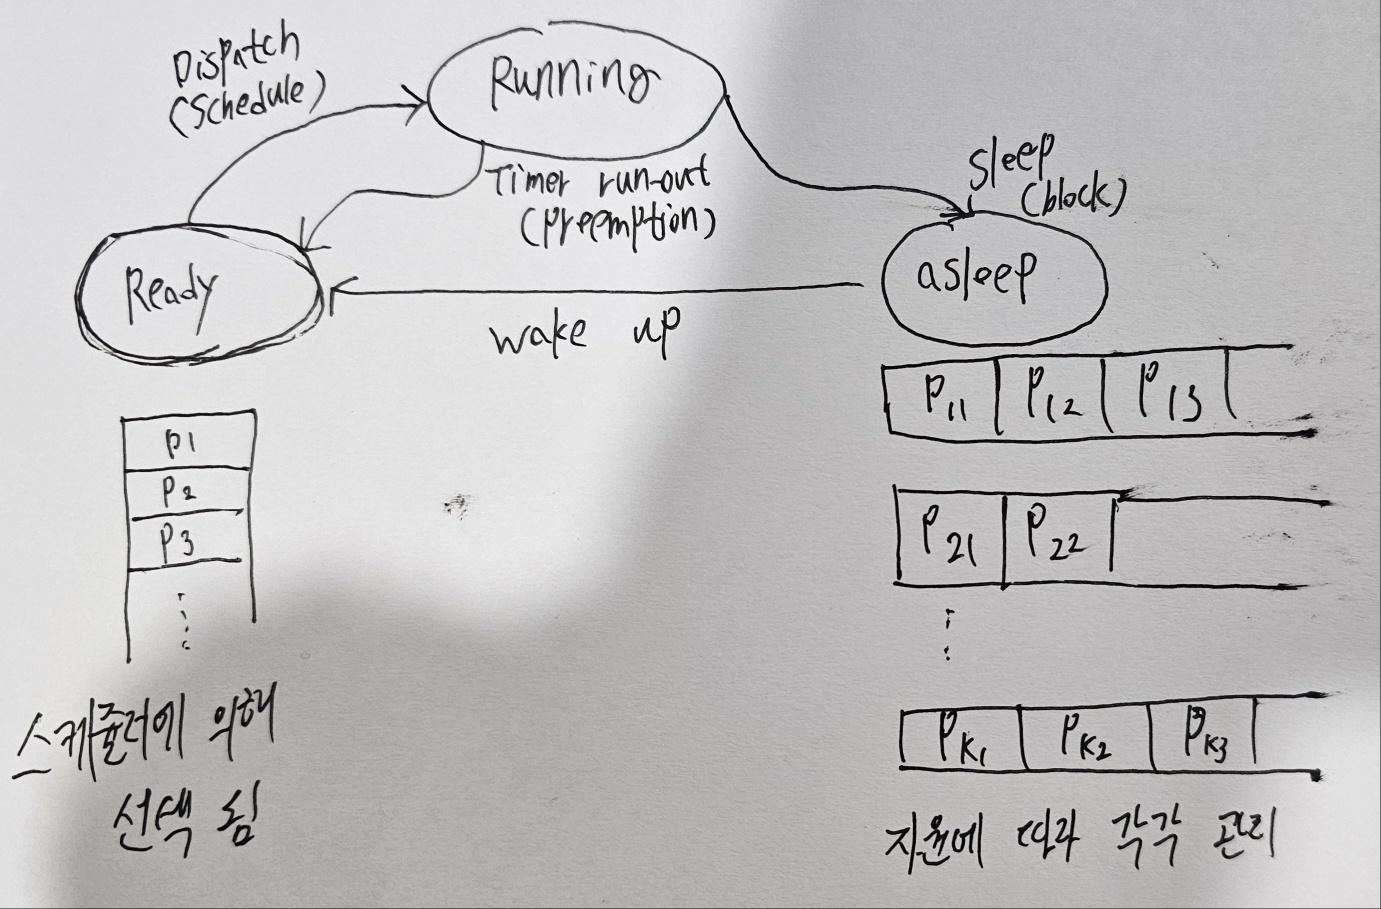 Dispatch
(Schedule)
Running
Timer run-out
(Preemption)
Sleep
(block)
Ready
asleep
wake up
P1
P2
P3
P11 P12 P13
P21 P22
PK1 PK2 PK3
스케줄러에 의해
선택 됨
자원에 따라 각각 관리